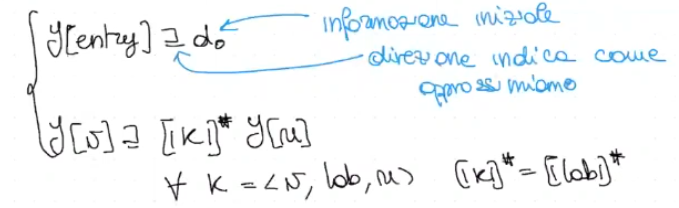 Y[entry] ⊒ d₀ informazione iniziale
direzione indica come
approssimiamo
Y[v] ⊒ [|k|]# Y[u]
∀ k = <v, lab, u> [|k|]# = [|lab|]#